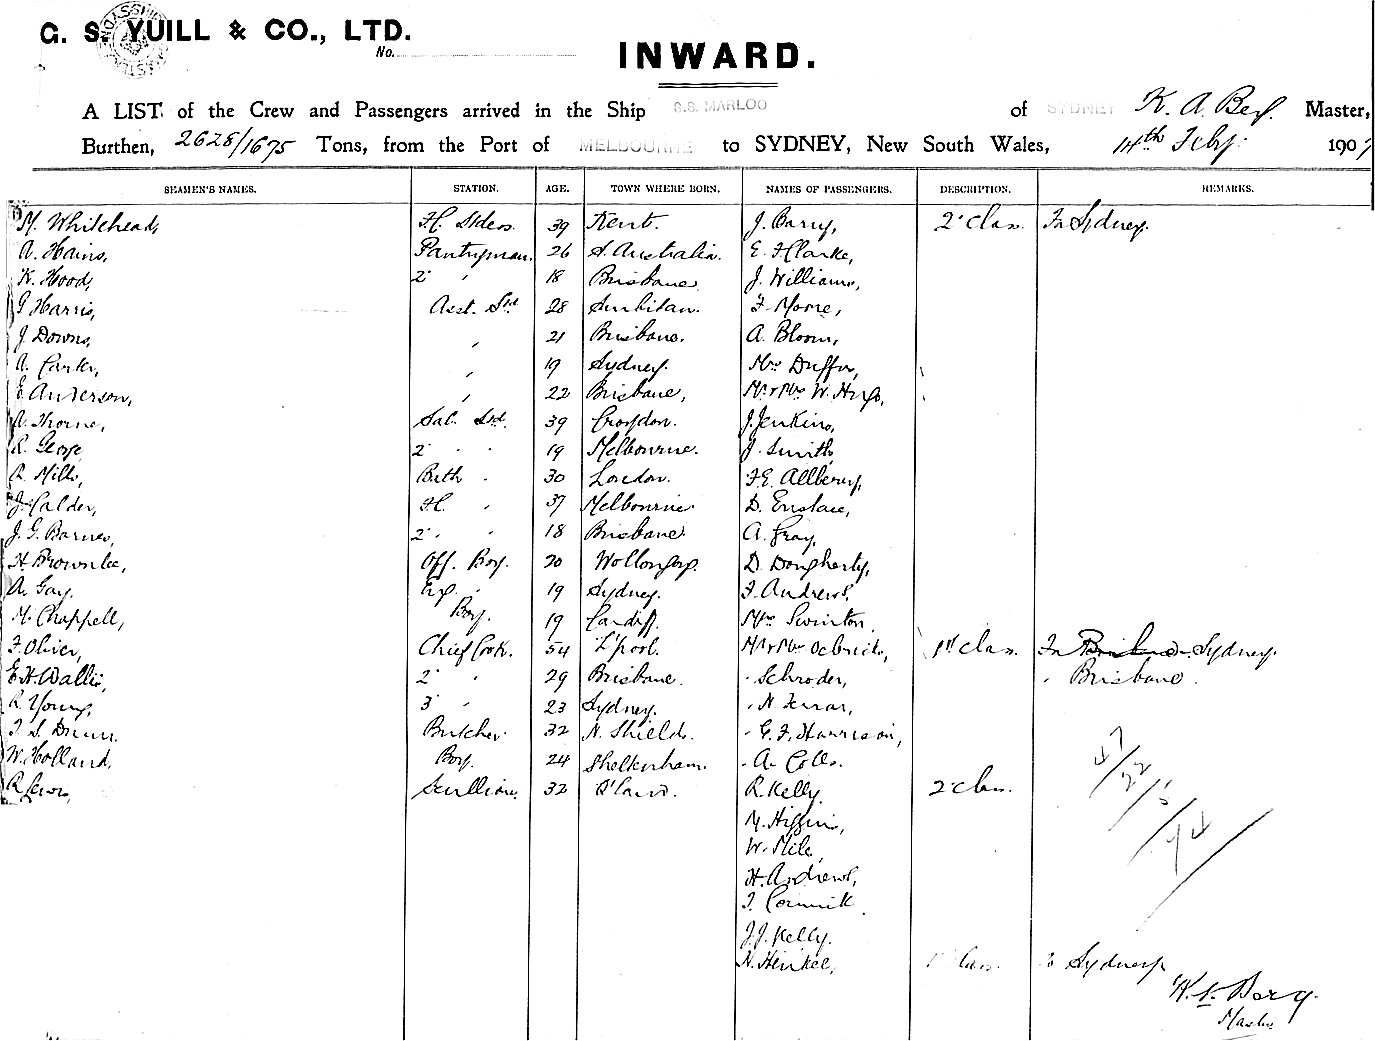 G. S. YUILL & CO., LTD.
No.
INWARD.
A LIST of the Crew and Passengers arrived in the Ship S.S. MARLOO of SYDNEY K. A. Berg. Master,
Burthen, 2628/1675 Tons, from the Port of MELBOURNE to SYDNEY, New South Wales, 14th Feby. 1907
SEAMEN'S NAMES. STATION. AGE. TOWN WHERE BORN. NAMES OF PASSENGERS. DESCRIPTION. REMARKS.
M. Whitehead, 39 Kent. J. Barry, 2' Class. Fr Sydney.
A. Hains, Pantryman. 26 S. Australia. E. F Clarke,
K. Hood, 2' ' 18 Brisbane. J. Williams,
G Harris, Asst. Std 28 F. Moore,
J. Downs, ' 21 Brisbane. A. Bloom,
A. Carter, ' 19 Sydney. Mrs Duffin,
E. Anderson, ' 22 Brisbane, Mr & Mrs W. Hugo,
A. Thorne, Sal. Std. 39 Croydon. J. Jenkins,
R. George, 2' ' ' 19 Melbourne. J. Smith,
R. Mills, Bath ' 30 London. F. E. Allbery,
J. Calder, F.C. ' 37 Melbourne. D. Enslace,
J. G. Barnes, 2' ' 18 Brisbane. A. Gray,
H. Brownlee, Off. Boy. 20 Wollongong. D. Dougherty,
A. Gay, Eng. ' 19 Sydney. F. Andrews,
M. Chappell, Boy. 19 Cardiff. Mrs Swinton,
F. Oliver, Chief Cook. 54 L'pool. Mr & Mrs 1st Class. Fr Brisbane Sydney.
E. H. Wallis, 2' ' 29 Brisbane. ' Schroder, ' Brisbane.
R. Young, 3' ' 23 Sydney. ' N. Ferrar,
T. S. Dunn. Butcher. 32 N. Shields. ' G. F. Harrison,
W. Holland, Boy. 24 Sheltenham. ' A. Colls.
R. Lewis, Scullion. 32 Q'land. R. Kelly. 2' Class.
M. Higgins,
W. Mile,
H. Andrews,
T. Cormick.
J. J. Kelly.
N. Henkel, 1' Class. Fr Sydney
47/22/5/74
K. A. Berg.
Master